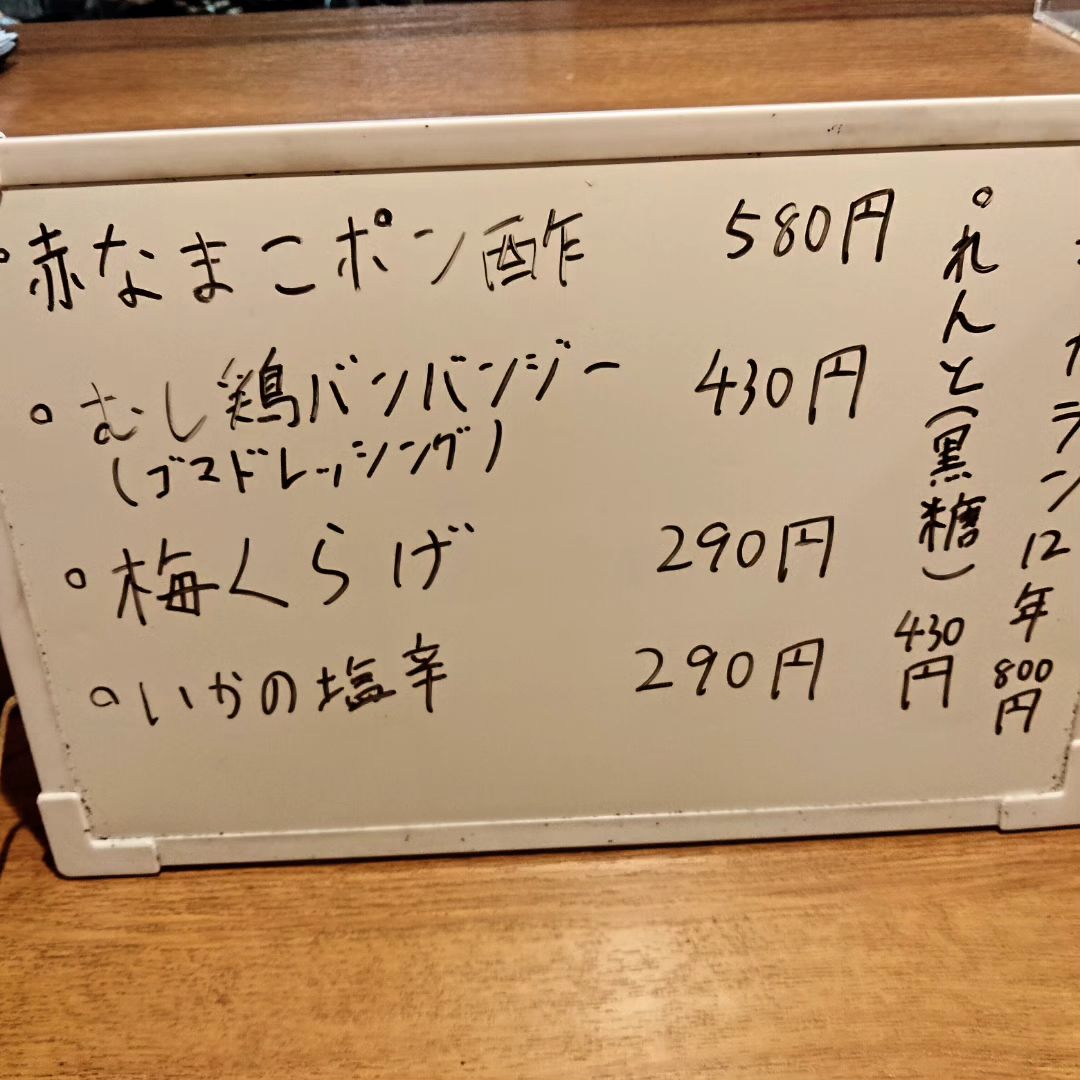 ・赤なまこポン酢 580円
・むし鶏バンバンジー 430円
(ゴマドレッシング)
・梅くらげ 290円
・いかの塩辛 290円
・れんと(黒糖) 430円
カラン12年 800円